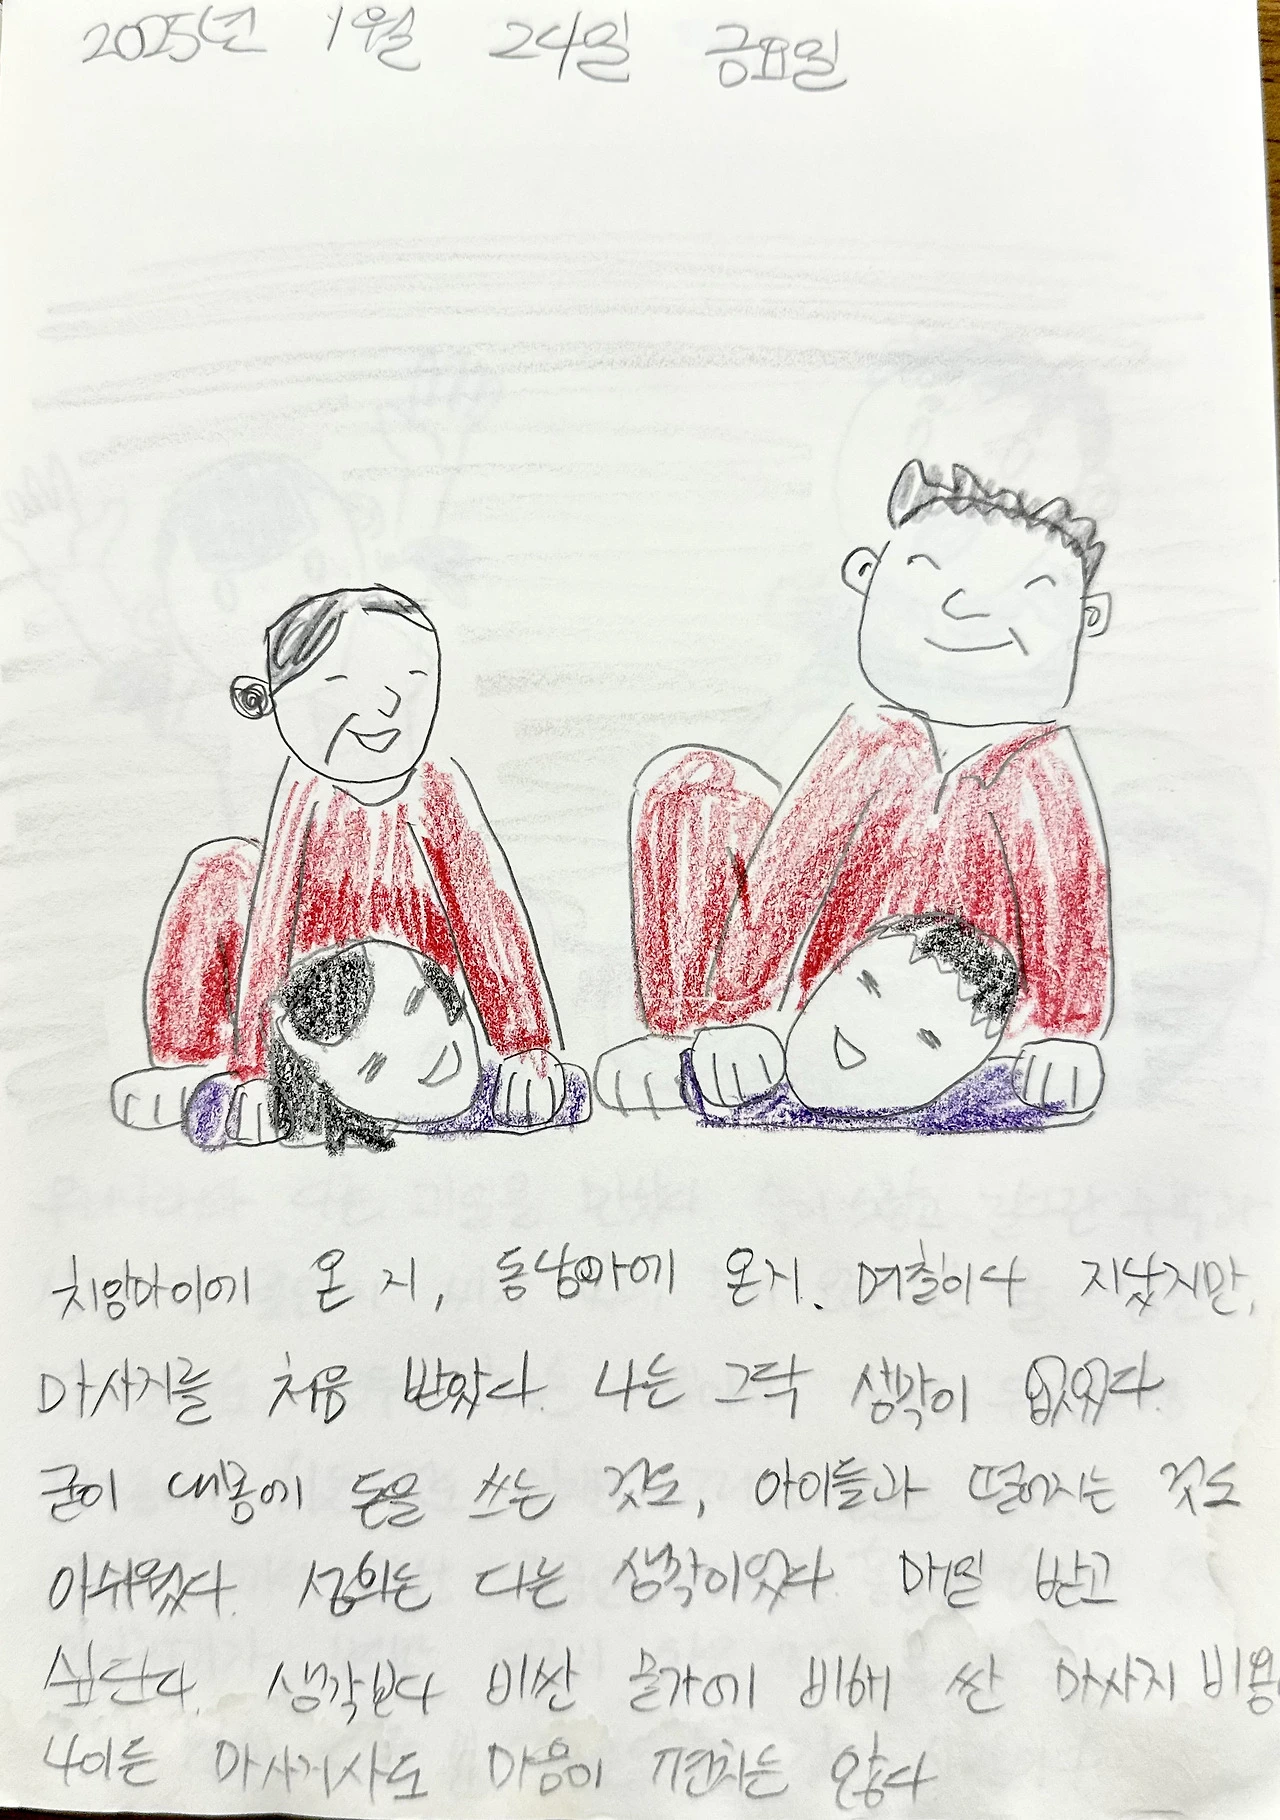 2025년 1월 24일 금요일
치앙마이에 온 지, 동남아에 온지. 며칠이나 지났지만,
마사지를 처음 받았다. 나는 그닥 생각이 없었다.
굳이 내몸에 돈을 쓰는 것도, 아이들과 떨어지는 것도
아쉬웠다. 성희는 다른 생각이었다. 매일 받고
싶단다. 생각보다 비싼 물가에 비해 싼 마사지 비용
나이든 마사지사도 마음이 편치는 않다